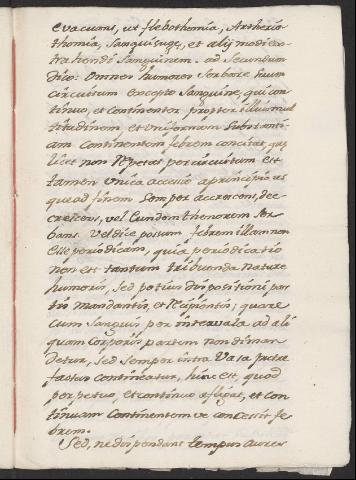 evacuans, ut flebothomia, Artherio
thomia, sanguisuge, et alij modi ex
trahendi sanguinem. ad secundum
dico: omnes humores servare suum
circuitum excepto sanguine, qui con
tinuo, et continenter propter illius mul
titudinem, et uniformam substanti
am continentem febrem concitat, que
licet non repetat per circuitum est
tamen unica accessio a principio us
que ad finem semper accrescens, de
crescens, vel eundem thenorem ser
bans. Vel dice possum febrem illam non
esse periodicam, quia periodicatio
non est tantum tribuenda nature
humoris, sed potius dispositioni par
tis mandantis, et recipientis; quare
cum sanguis per intervala ad ali
quam corporis partem non diman
detur, sed semper intra vasa putre
factus contineatur, hinc est, quod
perpetuo, et continuo afligat, et con
tinuam continentem ve concessit fe
brem.
Sed, ne dispendant tempus aures